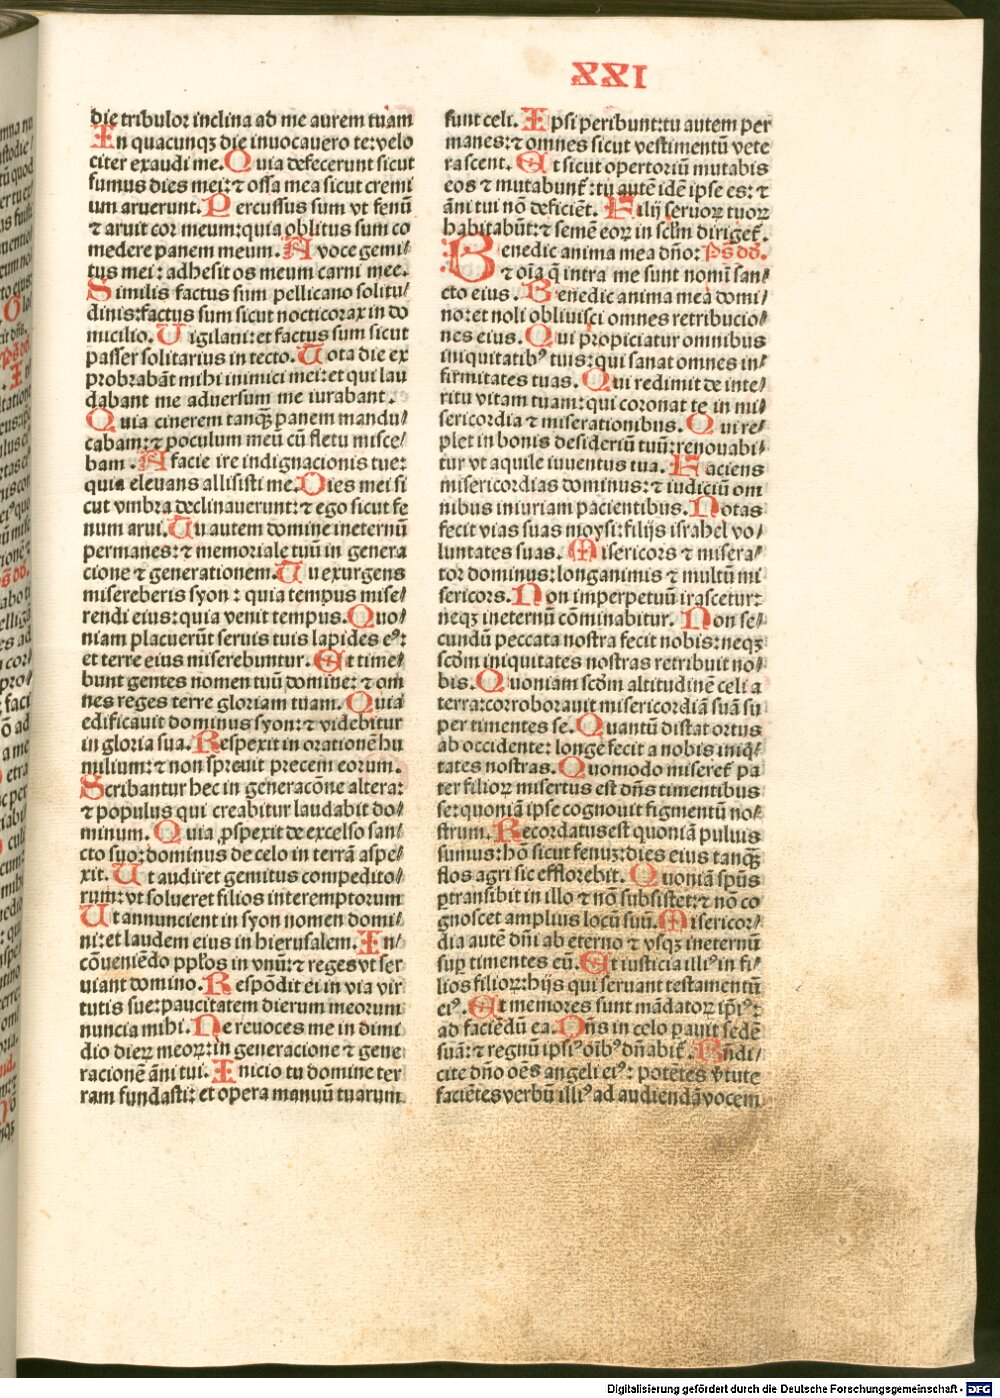 XXI
die tribulor inclina ad me aurem tuam
In quacunqꝫ die inuocauero te: velo
citer exaudi me. Quia defecerunt sicut
fumus dies mei: ⁊ ossa mea sicut cremi
um aruerunt. Percussus sum vt fenū
⁊ aruit cor meum: quia oblitus sum co
medere panem meum. A voce gemi⸗
tus mei: adhesit os meum carni mee.
Similis factus sum pellicano solitu⸗
dinis: factus sum sicut nocticorax in do
micilio. Uigilani: et factus sum sicut
passer solitarius in tecto. Tota die ex
probrabāt mihi inimici mei: et qui lau
dabant me aduersum me iurabant.
Quia cinerem tanqꝫ panem mandu⸗
cabam: ⁊ poculum meū cū fletu misce⸗
bam. A facie ire indignacionis tue:
quia eleuans allisisti me. Dies mei si
cut vmbra declinauerunt: ⁊ ego sicut fe
num arui. Tu autem domine ineternū
permanes: ⁊ memoriale tuū in genera
cione ⁊ generationem. Tu exurgens
misereberis syon: quia tempus mise⸗
rendi eius: quia venit tempus. Quo⸗
niam placuerūt seruis tuis lapides eꝰ:
et terre eius miserebuntur. Et time⸗
bunt gentes nomen tuū domine: ⁊ om
nes reges terre gloriam tuam. Quia
edificauit dominus syon: ⁊ videbitur
in gloria sua. Respexit in orationē hu
milium: ⁊ non spreuit precem eorum.
Scribantur hec in generacōne altera:
⁊ populus qui creabitur laudabit do⸗
minum. Quia ꝓspexit de excelso san⸗
cto suo: dominus de celo in terrā aspe⸗
xit. Ut audiret gemitus compedito⸗
rum: vt solueret filios interemptorum
Ut annuncient in syon nomen domi⸗
ni: et laudem eius in hierusalem. In⸗
cōueniēdo ppłos in vnū: ⁊ reges vt ser
uiant domino. Respōdit ei in via vir
tutis sue: paucitatem dierum meorum
nuncia mihi. Ne reuoces me in dimi
dio dierꝝ meorꝝ: in generacione ⁊ gene
racionē āni tui. Inicio tu domine ter
ram fundasti: et opera manuū tuarum
sunt celi. Ipsi peribunt: tu autem per
manes: ⁊ omnes sicut vestimentū vete
rascent. Et sicut opertoriū mutabis
eos ⁊ mutabunt̃: tu autē idē ipse es: ⁊
āni tui nō deficiēt. Filij seruorꝝ tuorꝝ
habitabūt: ⁊ semē eorꝝ in sclm dirigēt̃.
Benedic anima mea dño: Ps̄ dd.
⁊ oīa q̄ intra me sunt nomī san⸗
cto eius. Benedic anima mea domi⸗
no: et noli obliuisci omnes retribucio⸗
nes eius. Qui propiciatur omnibus
iniquitatibꝰ tuis: qui sanat omnes in⸗
firmitates tuas. Qui redimit de inte⸗
ritu vitam tuam: qui coronat te in mi⸗
sericordia ⁊ miserationibus. Qui re⸗
plet in bonis desideriū tuū: renouabi⸗
tur vt aquile iuuentus tua. Faciens
misericordias dominus: ⁊ iudiciū om
nibus iniuriam pacientibus. Notas
fecit vias suas moysi: filijs israhel vo⸗
luntates suas. Misericors ⁊ misera⸗
tor dominus: longanimis ⁊ multū mi
sericors. Non imperpetuū irascetur:
neqꝫ ineternū cōminabitur. Non se⸗
cundū peccata nostra fecit nobis: neqꝫ
scdm iniquitates nostras retribuit no⸗
bis. Quoniam scdm altitudinē celi a
terra: corroborauit misericordiā suā su
per timentes se. Quantū distat ortus
ab occidente: longe fecit a nobis iniq̄⸗
tates nostras. Quomodo miseret̃ pa
ter filiorꝝ misertus est dñs timentibus
se: quoniā ipse cognouit figmentū no⸗
strum. Recordatus est quoniā puluis
sumus: hō sicut fenuꝫ: dies eius tanqꝫ
flos agri sic efflorebit. Quoniā spūs
ꝑtransibit in illo ⁊ nō subsistet: ⁊ nō co
gnoscet amplius locū suū. Misericor⸗
dia autē dñi ab eterno ⁊ vsqꝫ ineternū
suꝑ timentes eū. Et iusticia illiꝰ in fi⸗
lios filiorꝝ: hijs qui seruant testamentū
eiꝰ. Et memores sunt mādatorꝝ ip̄iꝰ:
ad faciēdū ea. Dñs in celo pauit sedē
suā: ⁊ regnū ipsiꝰ oībꝰ dñabit̃. Bn̄di⸗
cite dño oēs angeli eiꝰ: potētes v̓tute
faciētes verbū illiꝰ ad audiendā vocem
Digitalisierung gefördert durch die Deutsche Forschungsgemeinschaft - DFG